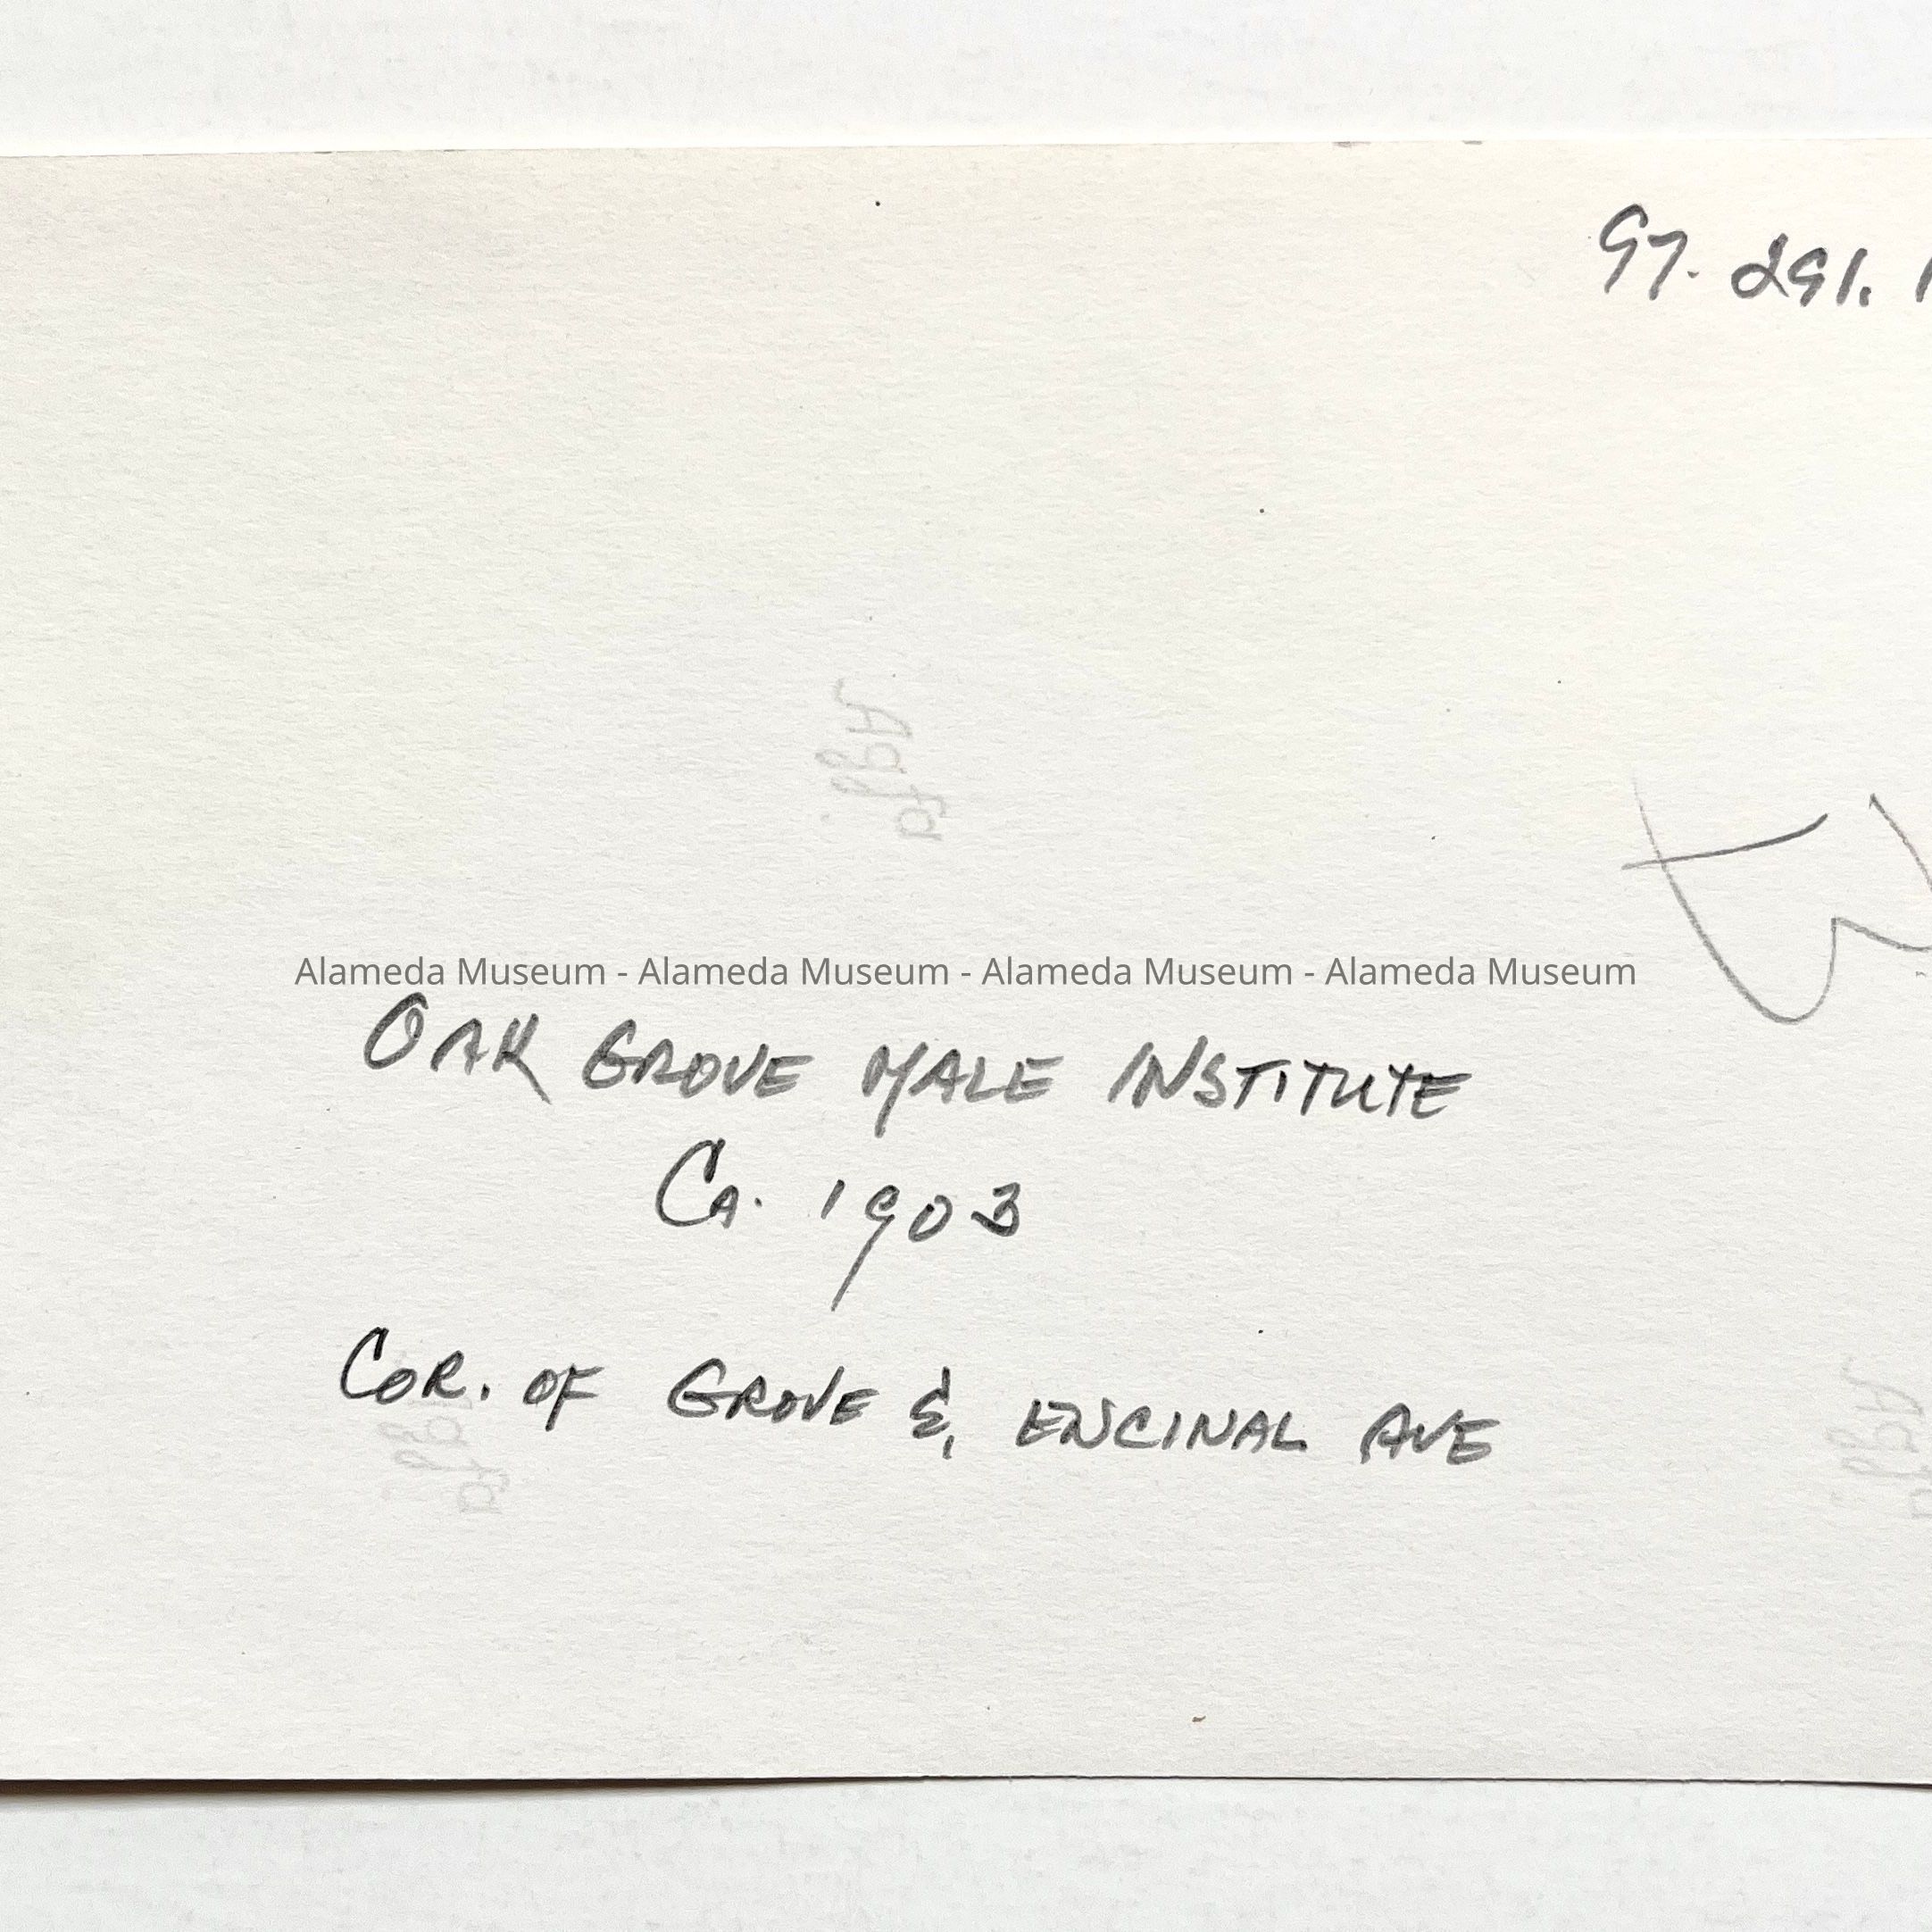 97.291.1
Agfa
Alameda Museum - Alameda Museum - Alameda Museum - Alameda Museum
OAK GROVE MALE INSTITUTE
CA. 1903
COR. OF GROVE & ENCINAL AVE
Agfa
Agfa